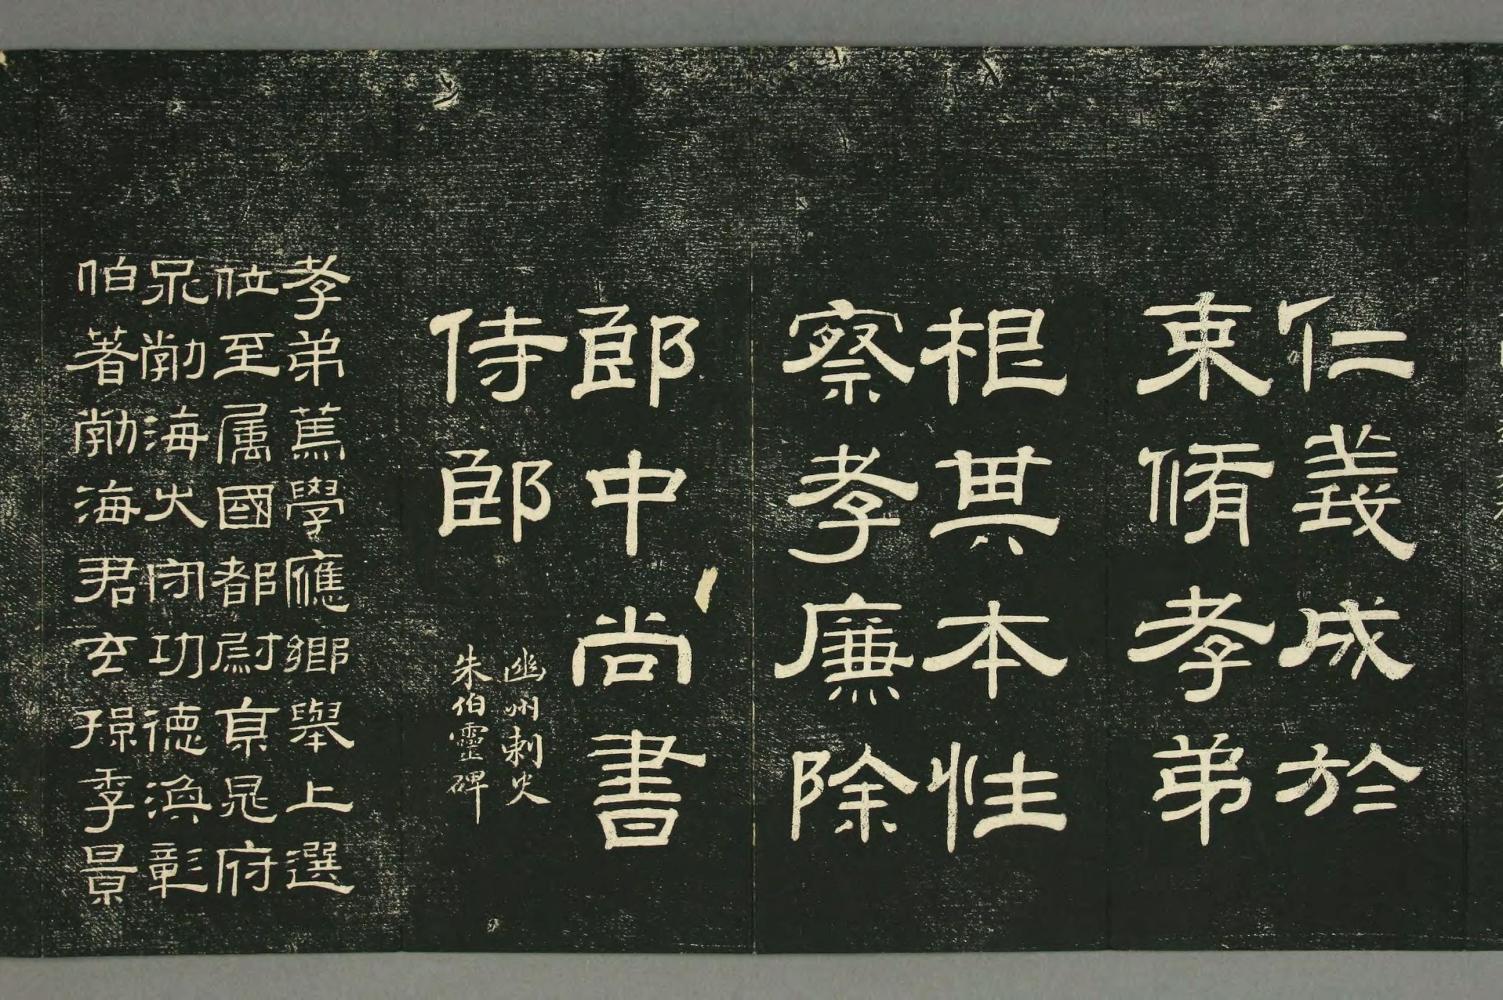 仁義成於
束脩孝弟
根其本性
察孝廉除
郎中尚書
侍郎
幽州刺史
朱伯靈碑
孝弟蔫學應鄉舉上選
位至属國都尉府
勃海功德渙彰
伯著勃海君玄孫季景